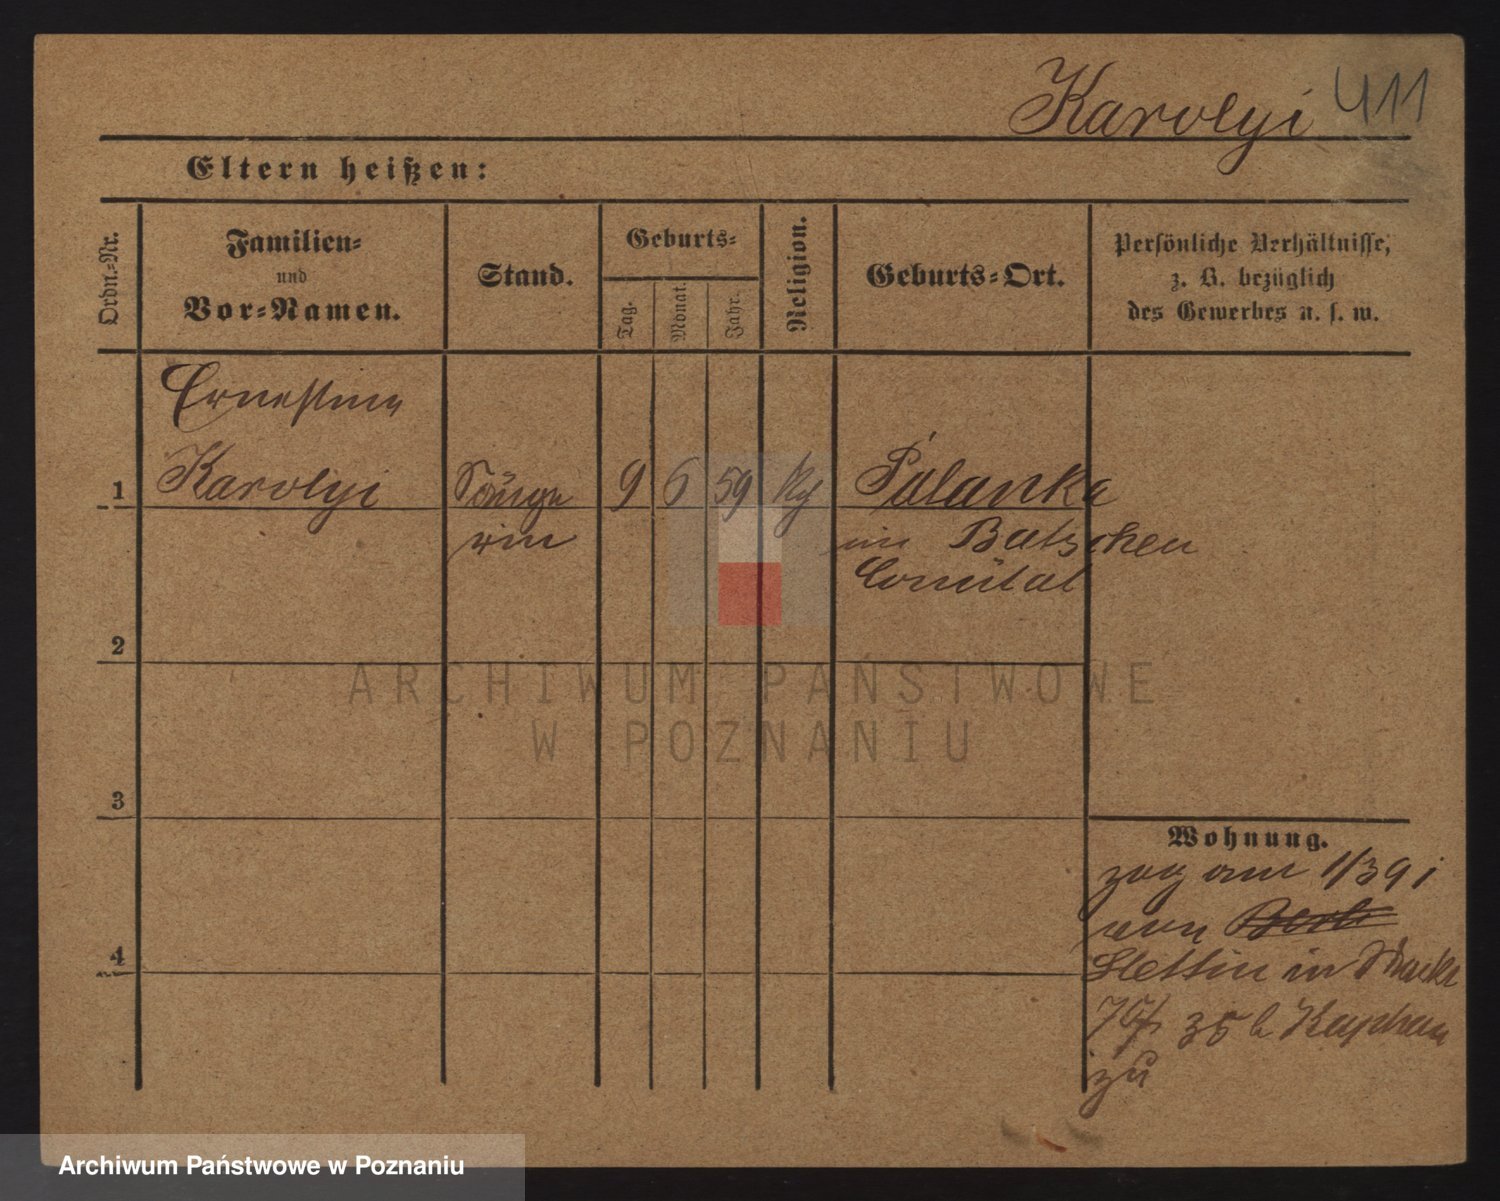 Karolyi 411
Eltern heißen:
Ordn.-Nr.
Familien-
und
Vor-Namen.
Stand.
Geburts-
Tag.
Monat.
Jahr.
Religion.
Geburts-Ort.
Persönliche Verhältnisse,
z. B. bezüglich
des Gewerbes u. s. w.
Ernestine
1 Karolyi Sänge 9 6 59 Palanka
rin im Batschen
Comitat
2
3
4
Wohnung.
zog am 1/3 91
von Berli
Stettin in
35 b
zu
ARCHIWUM PAŃSTWOWE
W POZNANIU
Archiwum Państwowe w Poznaniu